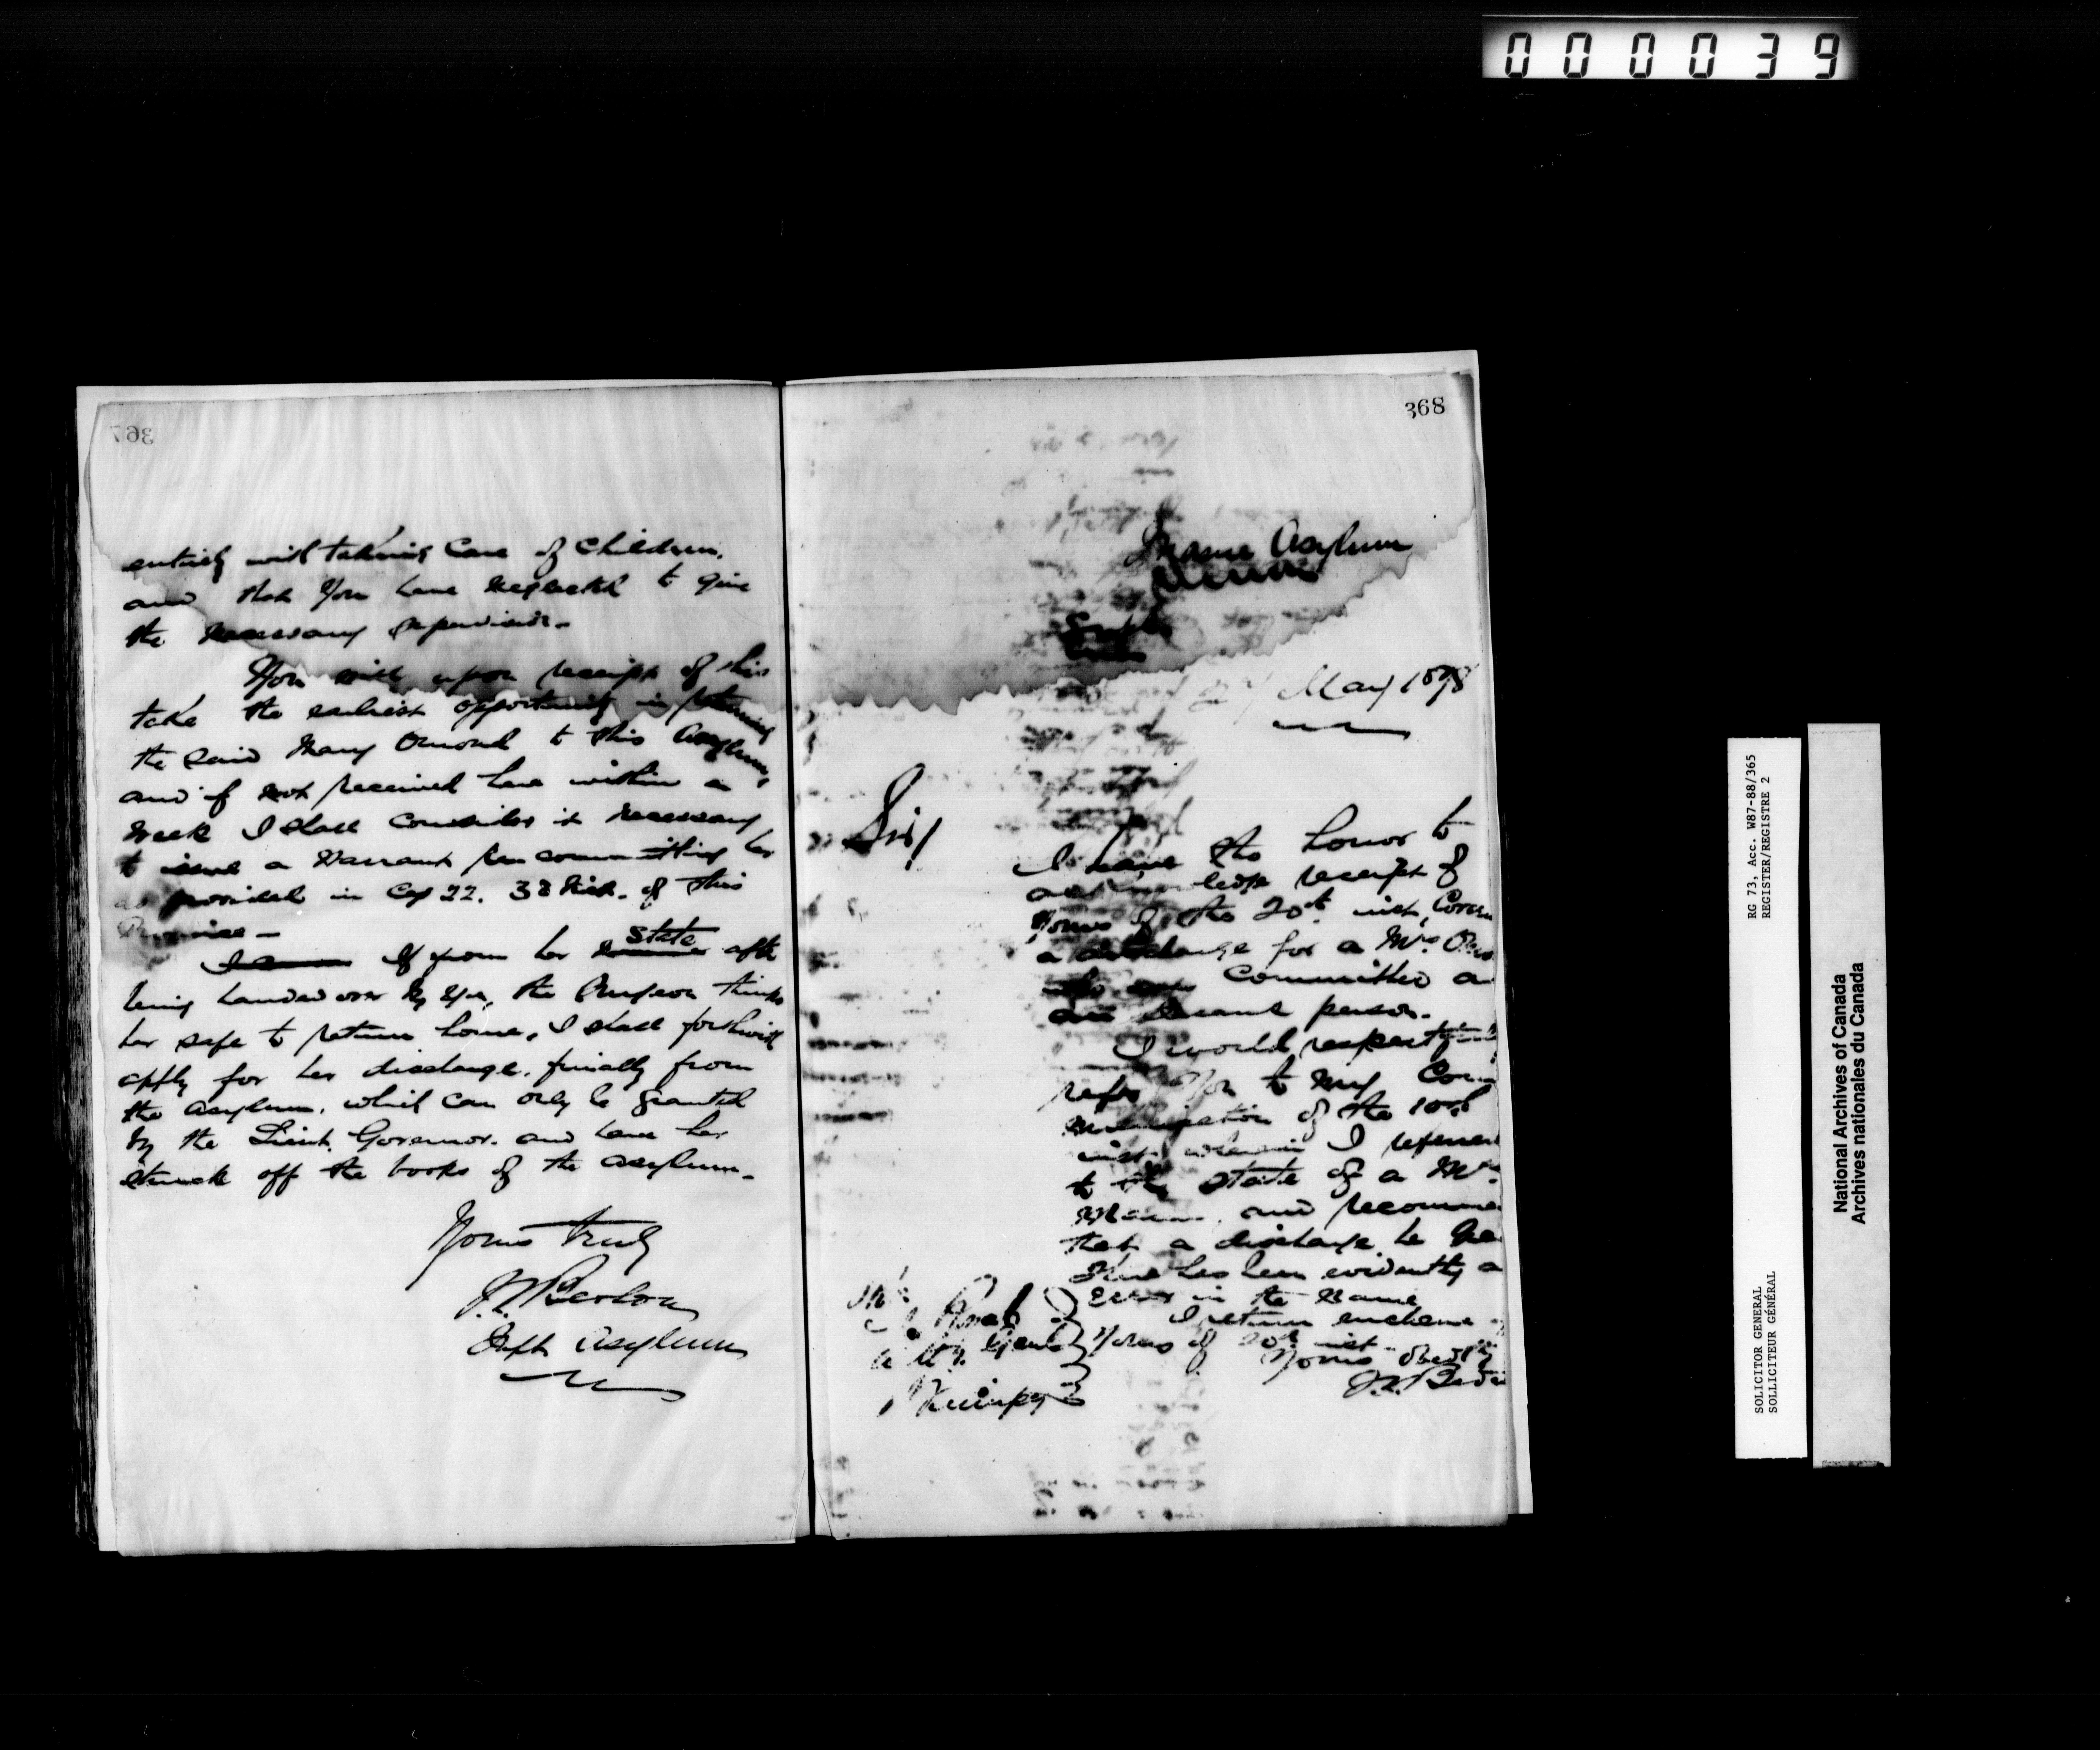 000039
367
entirely with taking Care of Children.
and that you have neglected to give
the necessary supervision.
You will upon receipt of this
take the earliest opportunity in returning
the said Mary Ormond to this Asylum,
and if not received here within a
week I shall consider it necessary
to issue a Warrant for committing her
as provided in Cap 22. 38 Vict. of this
Province —
If from her state after
being handed over by you, the Surgeon thinks
her safe to return home, I shall forthwith
apply for her discharge, finally from
the asylum. which can only be granted
by the Lieut. Governor. and have her
struck off the books of the asylum.
Yours truly
Supt Asylum
368
Insane Asylum
May 1878
Sir,
I have the honor to
acknowledge receipt of
Yours of the 20th inst, Coverin
a discharge for a Mrs
Committed a
an Insane person.
I would respectfully
refer you to my Com
munication of the 10th
inst wherein I referred
to the state of a Mrs
and recomme
that a discharge be
There has been evidently a
Error in the name
I return enclosed
Yours of 20th inst.
Yours
Atty. Genl
Winnipeg
RG 73, Acc. W87-88/365
REGISTER/REGISTRE 2
SOLICITOR GENERAL
SOLLICITEUR GÉNÉRAL
National Archives of Canada
Archives nationales du Canada